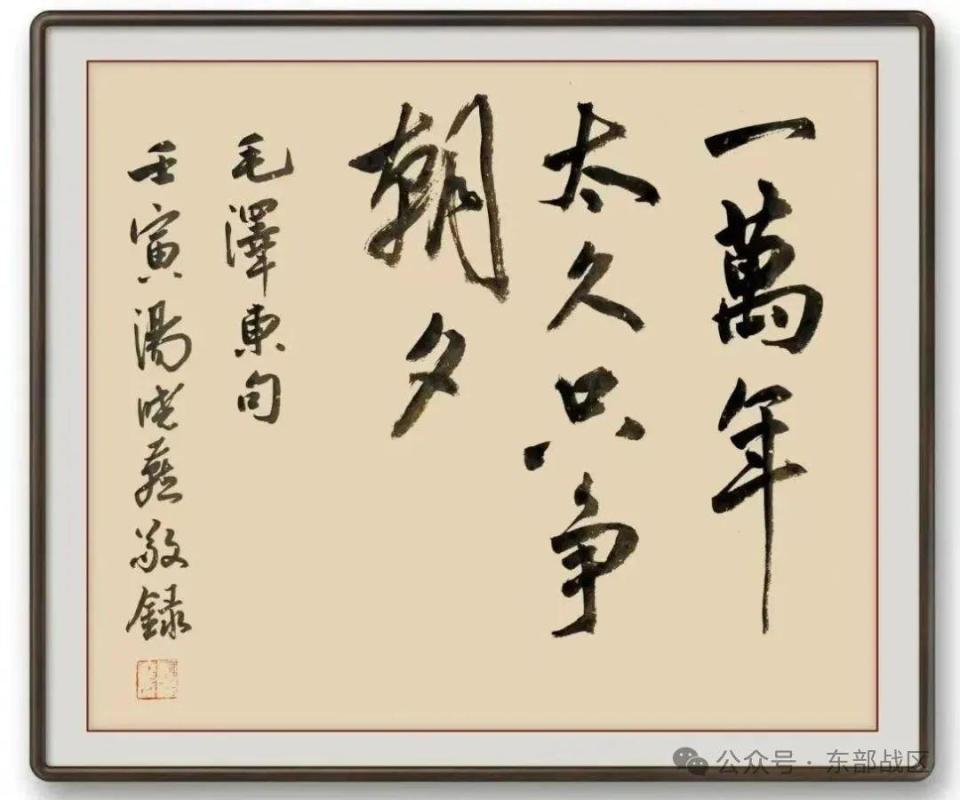 一萬年
太久只争
朝夕
毛澤東句
壬寅湯曉燕敬錄
公众号·东部战区